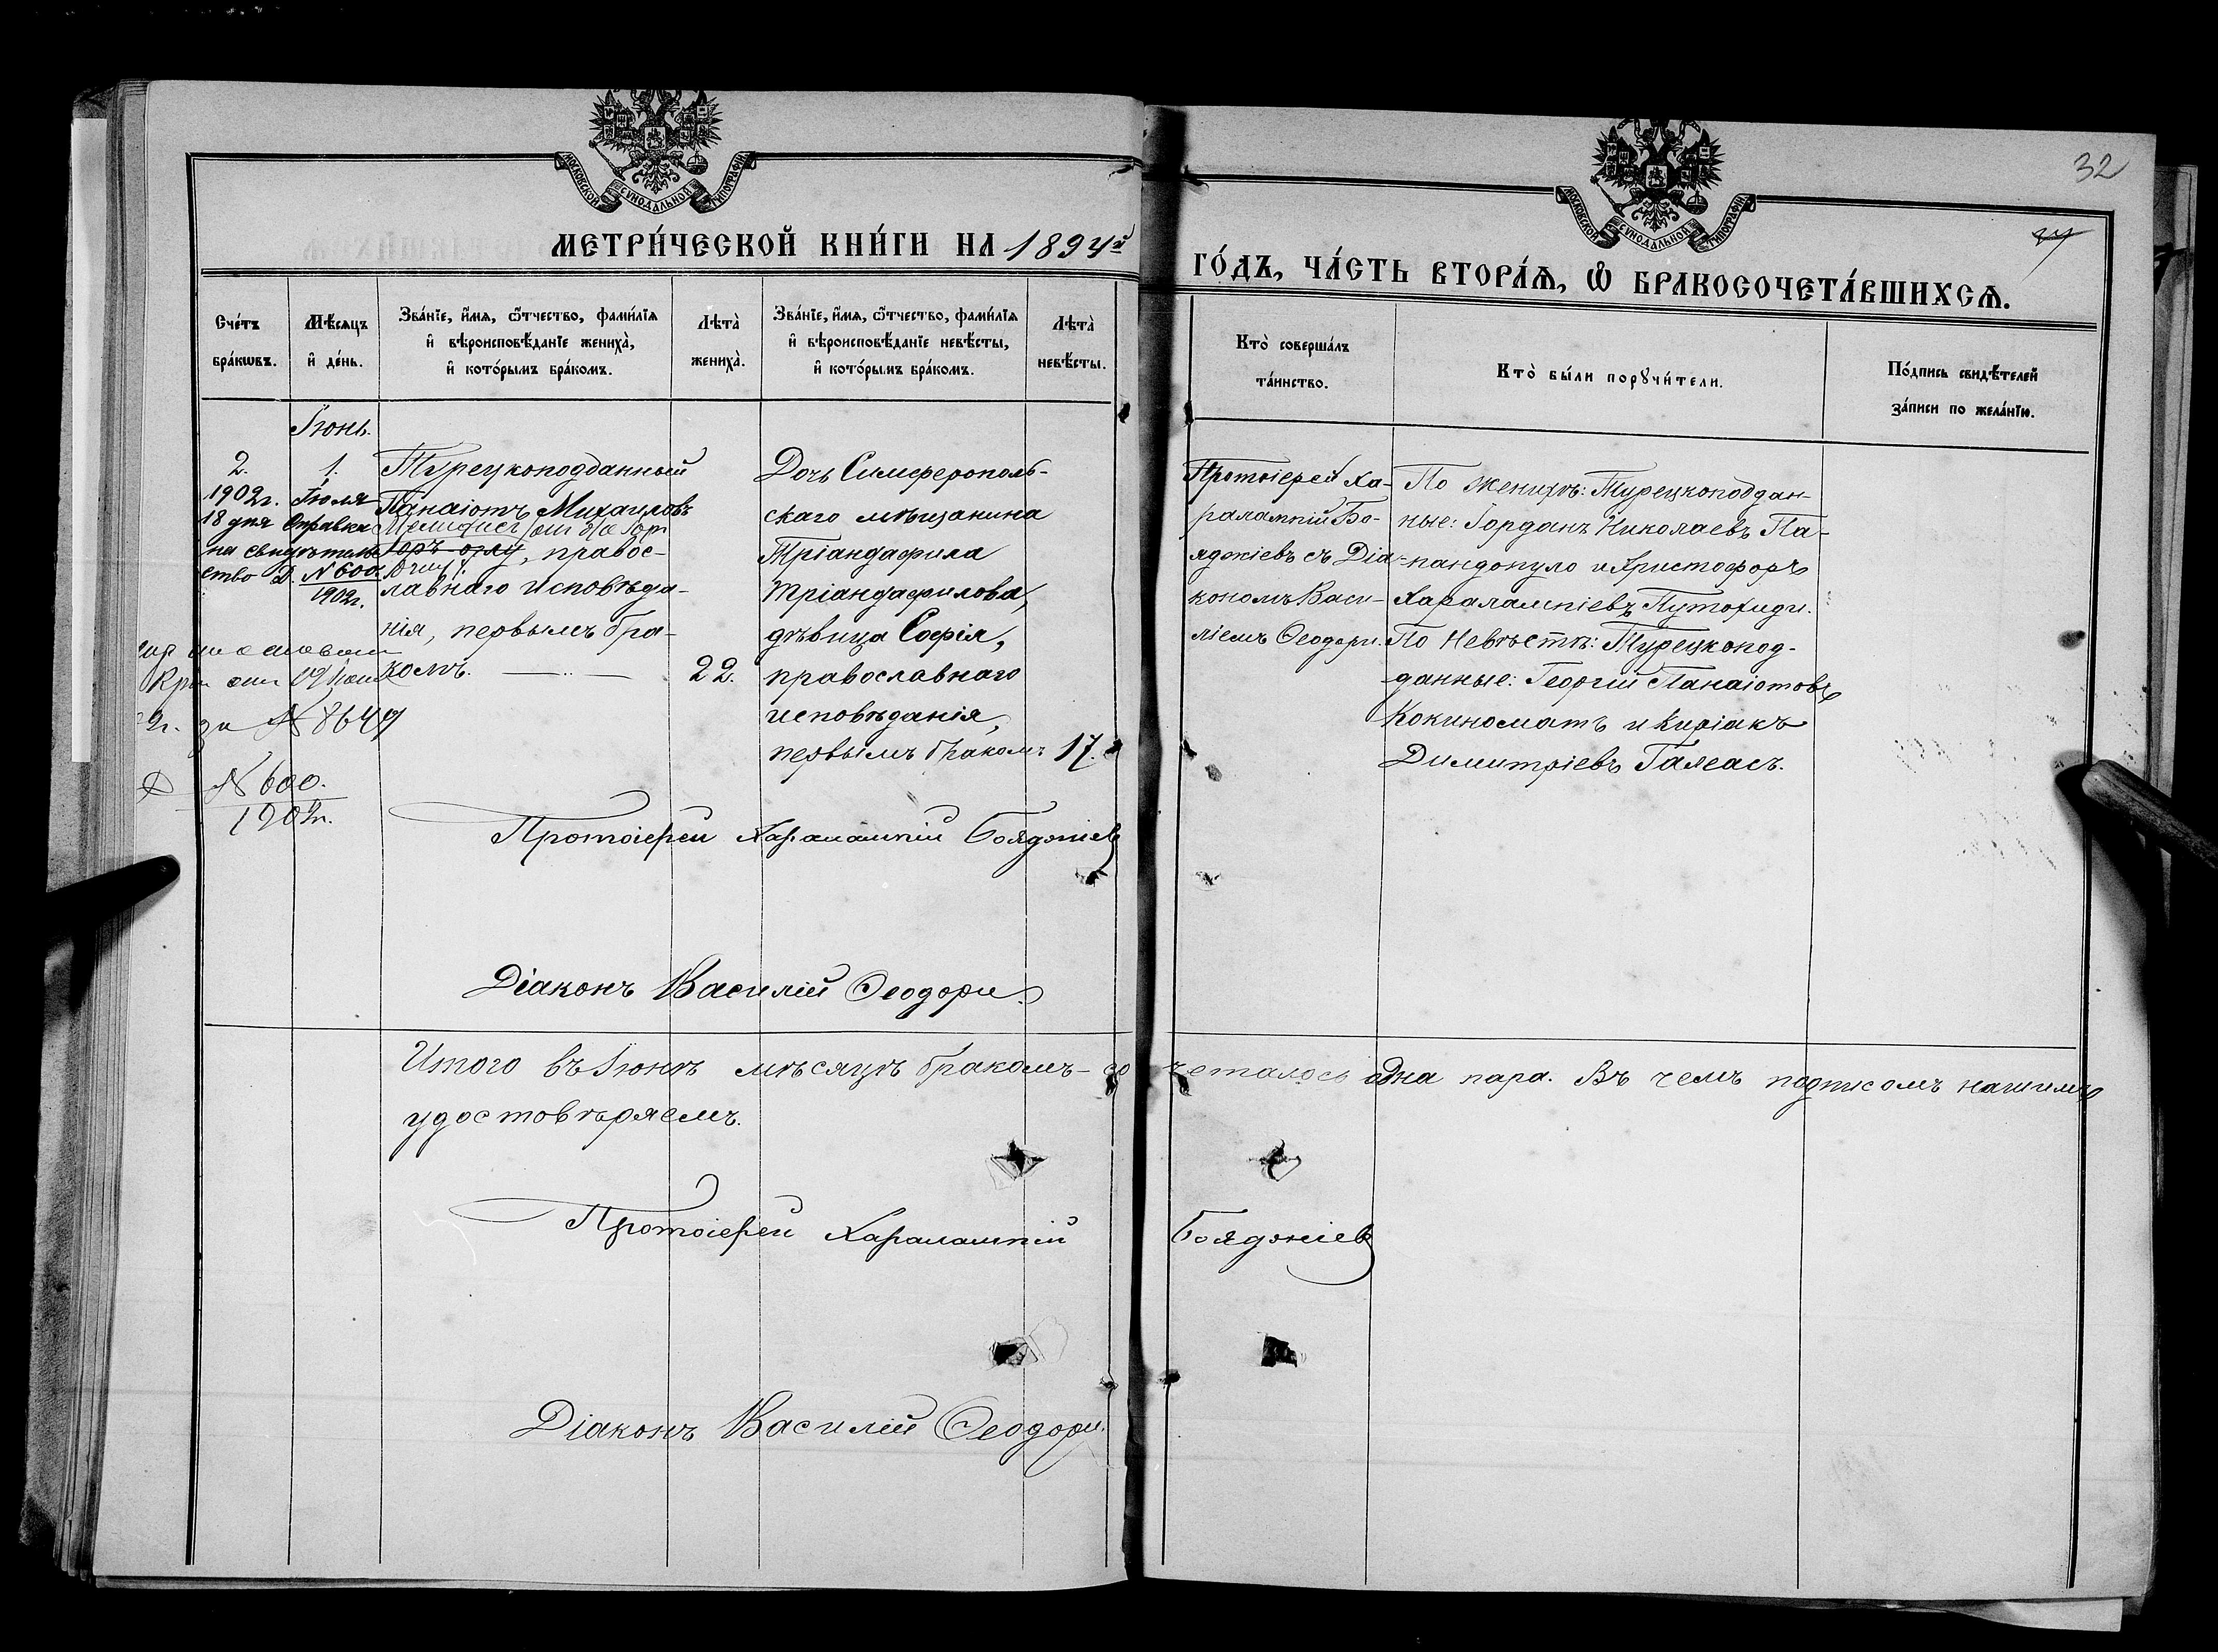 МОСКОВСКОЙ СѴНОДАЛЬНОЙ ТИПОГРАФІИ
МОСКОВСКОЙ СѴНОДАЛЬНОЙ ТИПОГРАФІИ
32
МЕТРИ́ЧЕСКОЙ КНИ́ГИ НА 1894й
ГО́ДЪ, ЧА́СТЬ ВТОРА́Ѧ, Ѽ БРАКОСОЧЕТА́ВШИХСѦ.
Сче́тъ
бра́кѡвъ.
Мѣ́сяцъ
и҆ де́нь.
Зва́нїе, и҆́мя, ѻ҆́тчество, фами́лїя
и҆ вѣроисповѣ́данїе жениха̀,
и҆ кото́рымъ бра́комъ.
Лѣта̀
жениха̀.
Зва́нїе, и҆́мя, ѻ҆́тчество, фами́лїя
и҆ вѣроисповѣ́данїе невѣ́сты,
и҆ кото́рымъ бра́комъ.
Лѣта̀
невѣ́сты.
Кто̀ соверша́лъ
та́инство.
Кто̀ бы́ли порꙋчи́тели.
По́дпись свидѣ́телей
за́писи по жела́нїю.
Іюнь.
2.
1.
1902г. Іюля
18 дня Справка
на свидѣтель
ство Д. № 600.
1902г.
за № 8649
№ 600.
1902г.
Турецкоподданный
Панаіотъ Михаиловъ
Юръ-оглу, правос-
лавнаго исповѣда-
нія, первымъ бра-
комъ.
22.
Дочь Симферополь-
скаго мѣщанина
Тріандафила
Тріандафилова,
дѣвица Софія,
православнаго
исповѣданія,
первымъ бракомъ 17.
Протоіерей Ха-
рала­мпій Бо-
яджіевъ съ Діа-
кономъ Васи-
ліемъ Ѳеодори.
По женихѣ: Турецкоподдан-
ные: Іорданъ Николаевъ Па-
пандопуло и Христофоръ
Харалампіевъ Путохиди.
По Невѣстѣ: Турецкопод-
данные: Георгій Панаіотовъ
Кокиноматъ и Киріакъ
Димитріевъ Галеасъ.
Протоіерей Харалампій Бояджіевъ
Діаконъ Василій Ѳеодори.
Итого въ Іюнѣ мѣсяцѣ бракомъ-со четалось одна пара. Въ чемъ подписомъ нашимъ
удостовѣряемъ.
Протоіерей Харалампій Бояджіевъ
Діаконъ Василій Ѳеодори.